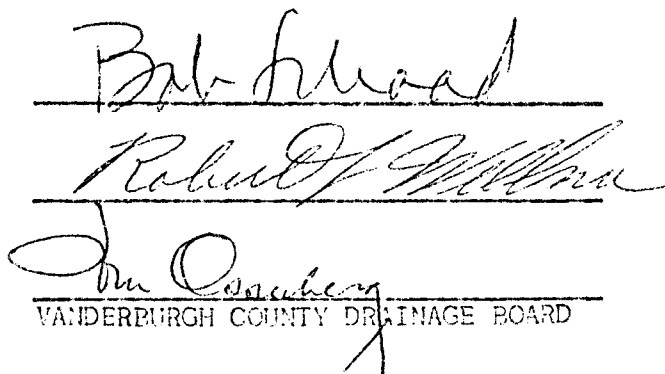 Bob Schaad
Robert L Willner
Tom Ossenberg
VANDERBURGH COUNTY DRAINAGE BOARD